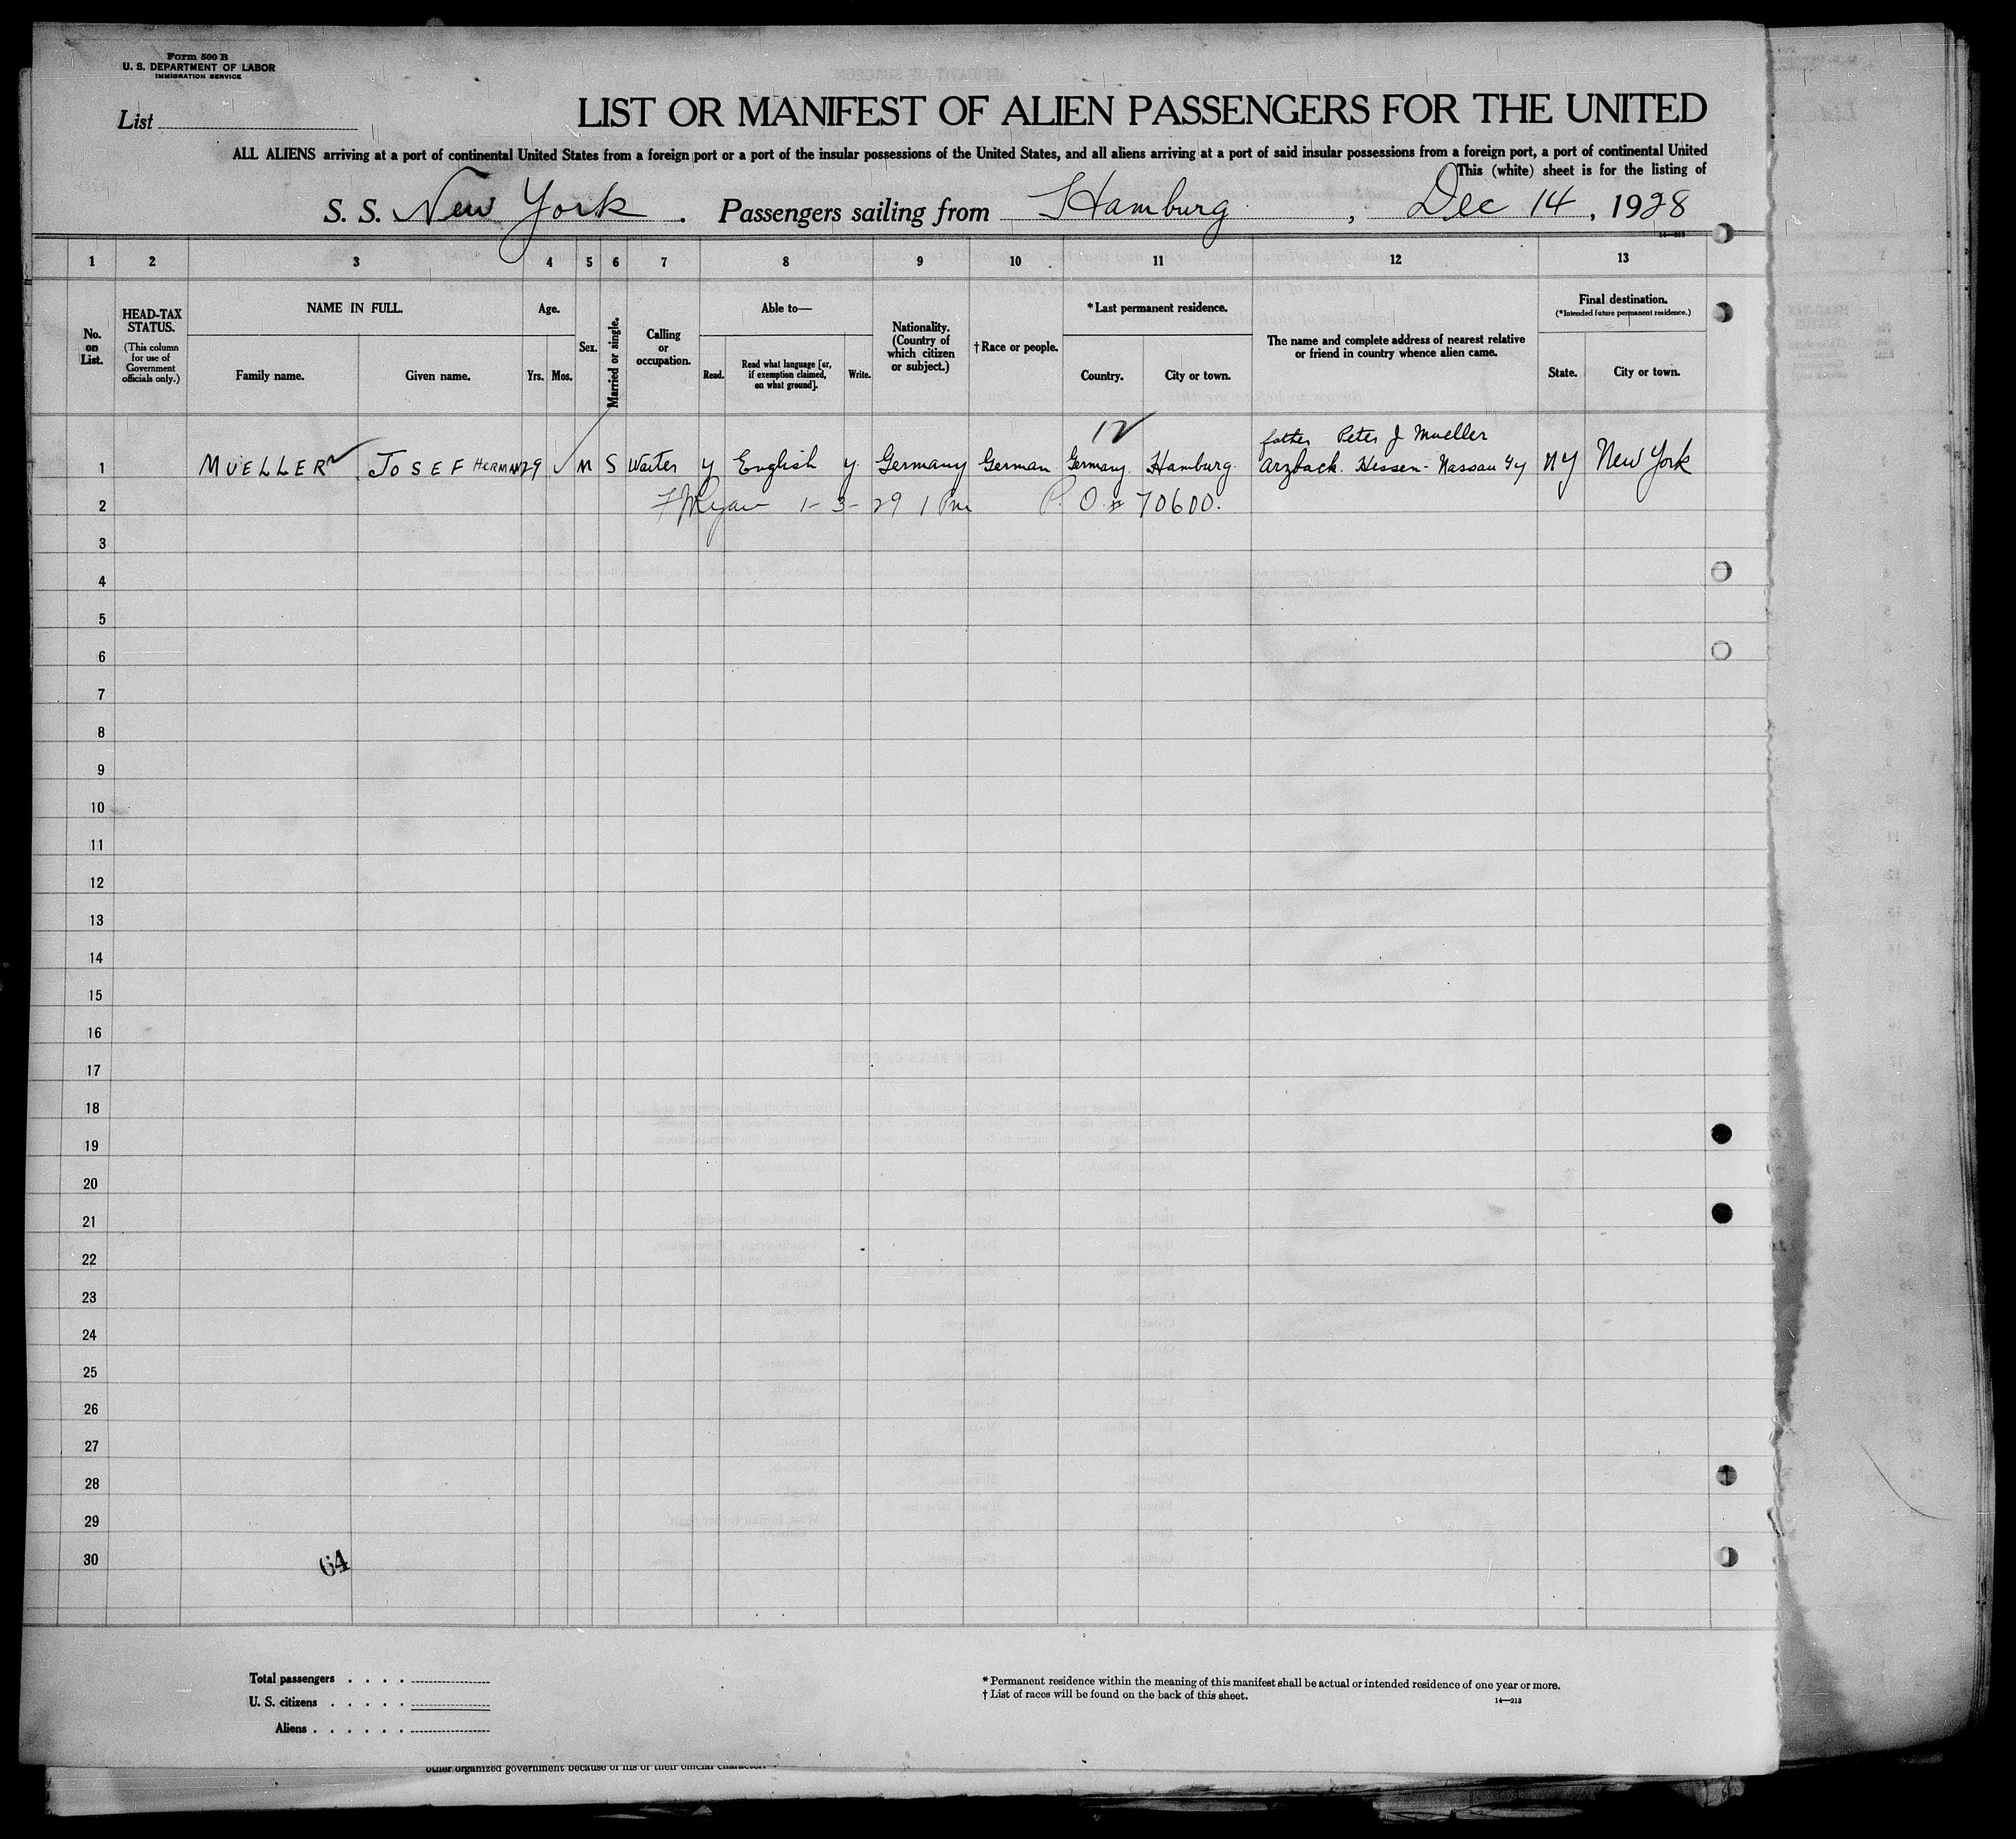 Form 500 B
U. S. DEPARTMENT OF LABOR
IMMIGRATION SERVICE
List
LIST OR MANIFEST OF ALIEN PASSENGERS FOR THE UNITED
ALL ALIENS arriving at a port of continental United States from a foreign port or a port of the insular possessions of the United States, and all aliens arriving at a port of said insular possessions from a foreign port, a port of continental United
This (white) sheet is for the listing of
S. S. New York . Passengers sailing from Hamburg , Dec 14 , 1928
1 2 3 4 5 6 7 8 9 10 11 12 13
No. on List.
HEAD-TAX STATUS.
(This column for use of Government officials only.)
NAME IN FULL.
Family name.
Given name.
Age.
Yrs.
Mos.
Sex.
Married or single.
Calling or occupation.
Able to—
Read.
Read what language [or, if exemption claimed, on what ground].
Write.
Nationality. (Country of which citizen or subject.)
†Race or people.
*Last permanent residence.
Country.
City or town.
The name and complete address of nearest relative or friend in country whence alien came.
Final destination.
(*Intended future permanent residence.)
State.
City or town.
12
father Peter J Mueller
1 MUELLER JOSEF HERMAN 29 M S Waiter y English y. Germany German Germany Hamburg. Arzbach. Hessen-Nassau Gy NY New York
2 1-3-29 1 Pm P. O. # 70600.
3
4
5
6
7
8
9
10
11
12
13
14
15
16
17
18
19
20
21
22
23
24
25
26
27
28
29
30
64
Total passengers
U. S. citizens
Aliens
* Permanent residence within the meaning of this manifest shall be actual or intended residence of one year or more.
† List of races will be found on the back of this sheet.
14—213
other organized government because of his or their official character.